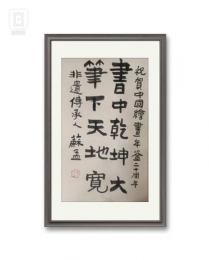 祝賀中國繪畫年鉴二十周年
書中乾坤大
筆下天地寬
非遺傳承人 蘇孟